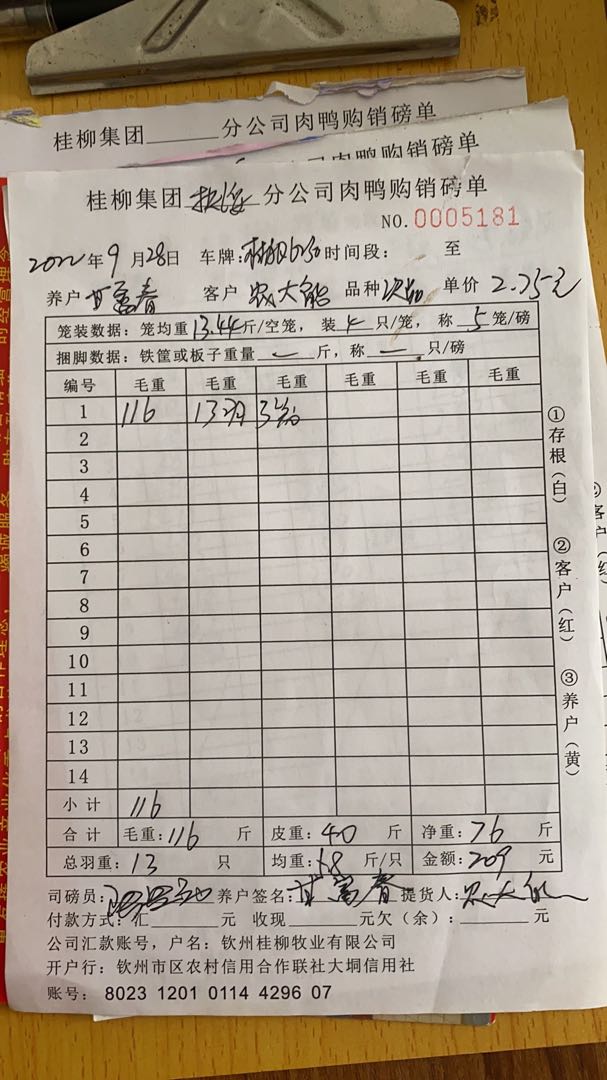 桂柳集团 分公司肉鸭购销磅单
桂柳集团 分公司肉鸭购销磅单
桂柳集团 分公司肉鸭购销磅单
NO.0005181
2022年9月28日 车牌: 时间段: 至
养户 甘富春 客户 农大能 品种 次品 单价 2.75元
笼装数据:笼均重13.44斤/空笼,装4只/笼,称5笼/磅
捆脚数据:铁筐或板子重量 — 斤,称 — 只/磅
编号 毛重 毛重 毛重 毛重 毛重 毛重
1 116 13羽 3笼
2
3
4
5
6
7
8
9
10
11
12
13
14
小计 116
合计 毛重:116 斤 皮重:40 斤 净重:76 斤
总羽重:13 只 均重: 斤/只 金额:209 元
司磅员: 养户签名:甘富春 提货人:农大能
付款方式:汇 元 收现 元欠(余): 元
公司汇款账号,户名:钦州桂柳牧业有限公司
开户行:钦州市区农村信用合作联社大垌信用社
账号: 8023 1201 0114 4296 07
①存根(白)
②客户(红)
③养户(黄)